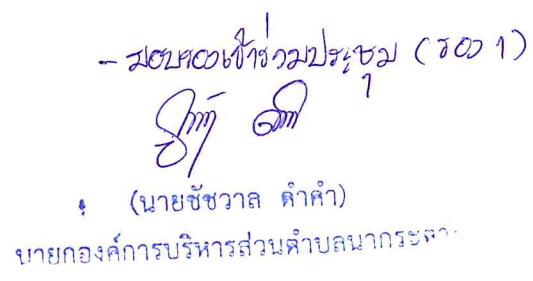 - มอบรองเข้าร่วมประชุม (รอง 1)
(นายชัชวาล ดำคำ)
นายกองค์การบริหารส่วนตำบลนากระตาม